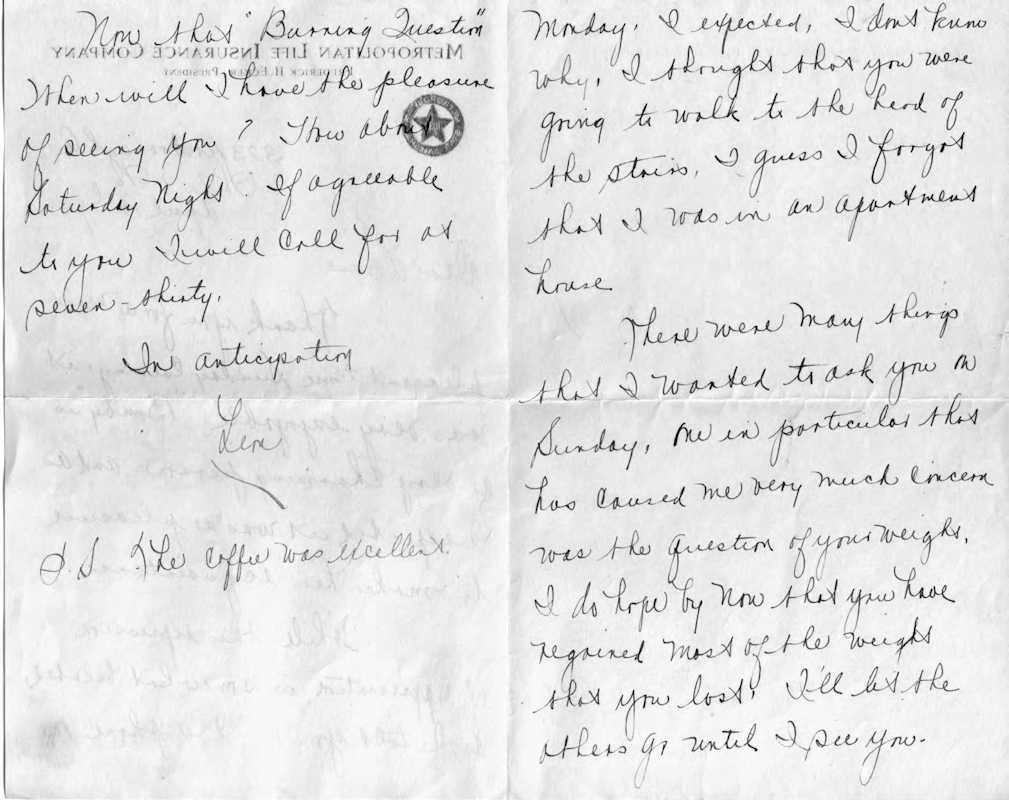 Now that "Burning Question"
METROPOLITAN LIFE INSURANCE COMPANY
FREDERICK H. ECKER, PRESIDENT
When will I have the pleasure
of seeing you? How about
Saturday Night. If agreeable
to you I will call for at
seven-thirty.
In anticipation
Leon
P.S. The coffee was excellent.
Monday. I expected, I dont know
why, I thought that you were
going to walk to the head of
the stairs, I guess I forgot
that I was in an apartment
house
There were many things
that I wanted to ask you on
Sunday, one in particular that
has caused me very much concern
was the question of your weight.
I do hope by now that you have
regained most of the weight
that you lost. I'll let the
others go until I see you.